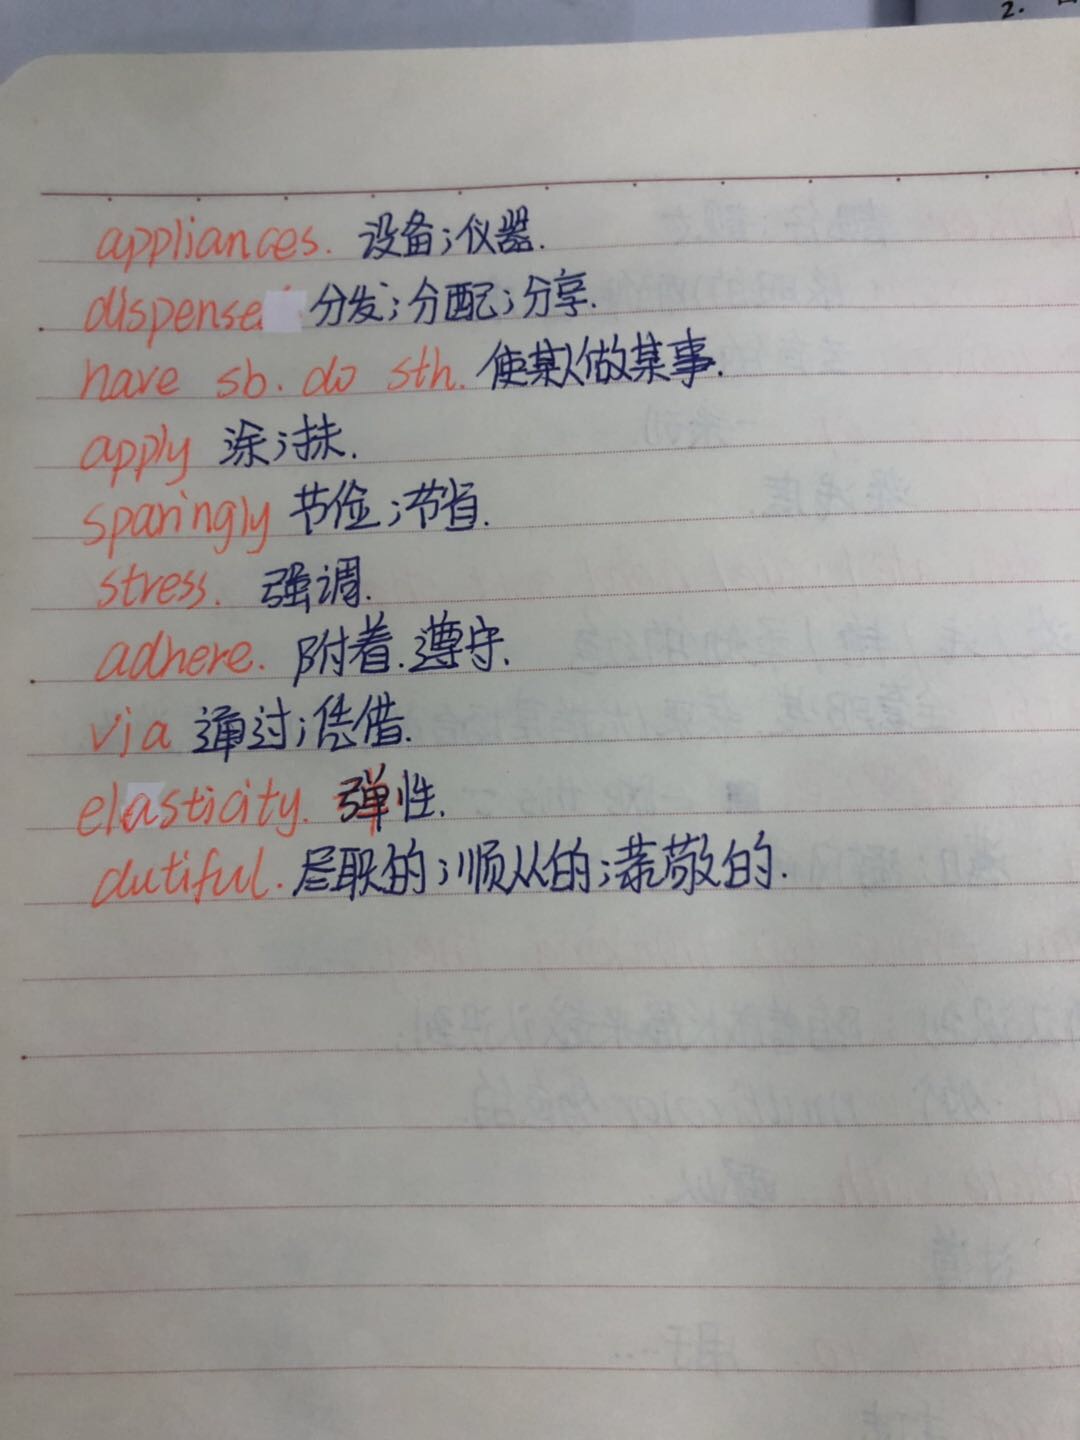 2.
appliances. 设备;仪器.
dispense 分发;分配;分享.
have sb. do sth. 使某人做某事.
apply 涂;抹.
sparingly 节俭;节省.
stress. 强调.
adhere. 附着.遵守.
via 通过;凭借.
elasticity. 弹性.
dutiful. 尽职的;顺从的;恭敬的.